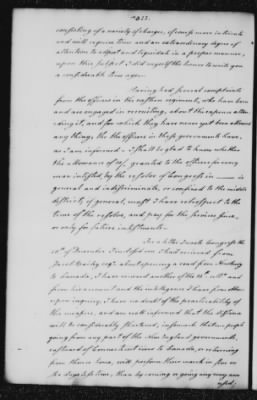 consisting of a variety of charges, of course more intricate
and will require time and an extraordinary degree of
attention to adjust and liquidate in a proper manner,
upon this subject I did myself the honor to write you
a considerable time ago.
Having had several complaints
from the officers in the eastern regiments, who have been
and are engaged in recruiting, about the expence atten-
ding it, and for which they have never yet been allowed
any thing, tho the officers in these governments have,
as I am informed. I shall be glad to know whether
the allowance of granted to the officers for every
man inlisted, by the resolve of Congress in
is general and indiscriminate, or confined to the middle
districts, if general, must I have retrospect to the
time of the resolve, and pay for the services since,
or only for future inlistments.
In a letter I wrote Congress the
of December I inclosed one I had received from
Jacob Bayley esqr. about opening a road from Newbury
to Canada, I have received another of the ult. and
from his account and the intelligence I have from others
upon inquiry, I have no doubt of the practicability of
the measure, and am well informed that the distance
will be considerably shortened, insomuch that people
going from any part of the New England governments
eastward of Connecticut river to Canada, or returning
from thence home, will perform their march in five or
six days less time, than by coming or going any way now
used;